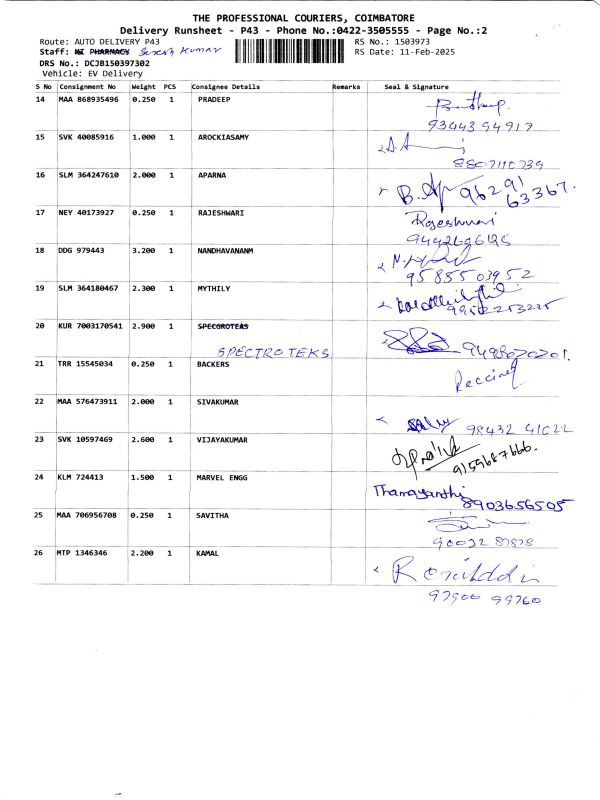 THE PROFESSIONAL COURIERS, COIMBATORE
Delivery Runsheet - P43 - Phone No.:0422-3505555 - Page No.:2
Route: AUTO DELIVERY P43 RS No.: 1503973
Staff: Suresh Kumar RS Date: 11-Feb-2025
DRS No.: DCJB150397302
Vehicle: EV Delivery
S No Consignment No Weight PCS Consignee Details Remarks Seal & Signature
14 MAA 868935496 0.250 1 PRADEEP
9344394917
15 SVK 40085916 1.000 1 AROCKIASAMY
8807110739
16 SLM 364247610 2.000 1 APARNA
96291
63367.
17 NEY 40173927 0.250 1 RAJESHWARI Rajeshwari
9442606125
18 DDG 979443 3.200 1 NANDHAVANANM
9585503952
19 SLM 364180467 2.300 1 MYTHILY
20 KUR 7003170541 2.900 1 SPECGROTEAS
SPECTRO TEKS
21 TRR 15545034 0.250 1 BACKERS
22 MAA 576473911 2.000 1 SIVAKUMAR
98432 41022
23 SVK 10597469 2.600 1 VIJAYAKUMAR
9159687666.
24 KLM 724413 1.500 1 MARVEL ENGG Thamayanthi
8903656505
25 MAA 706956708 0.250 1 SAVITHA
90032 87878
26 MTP 1346346 2.200 1 KAMAL
97900 99760